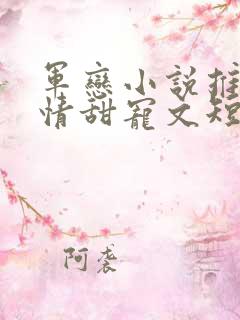 軍戀小說推
情甜寵文短
阿袭